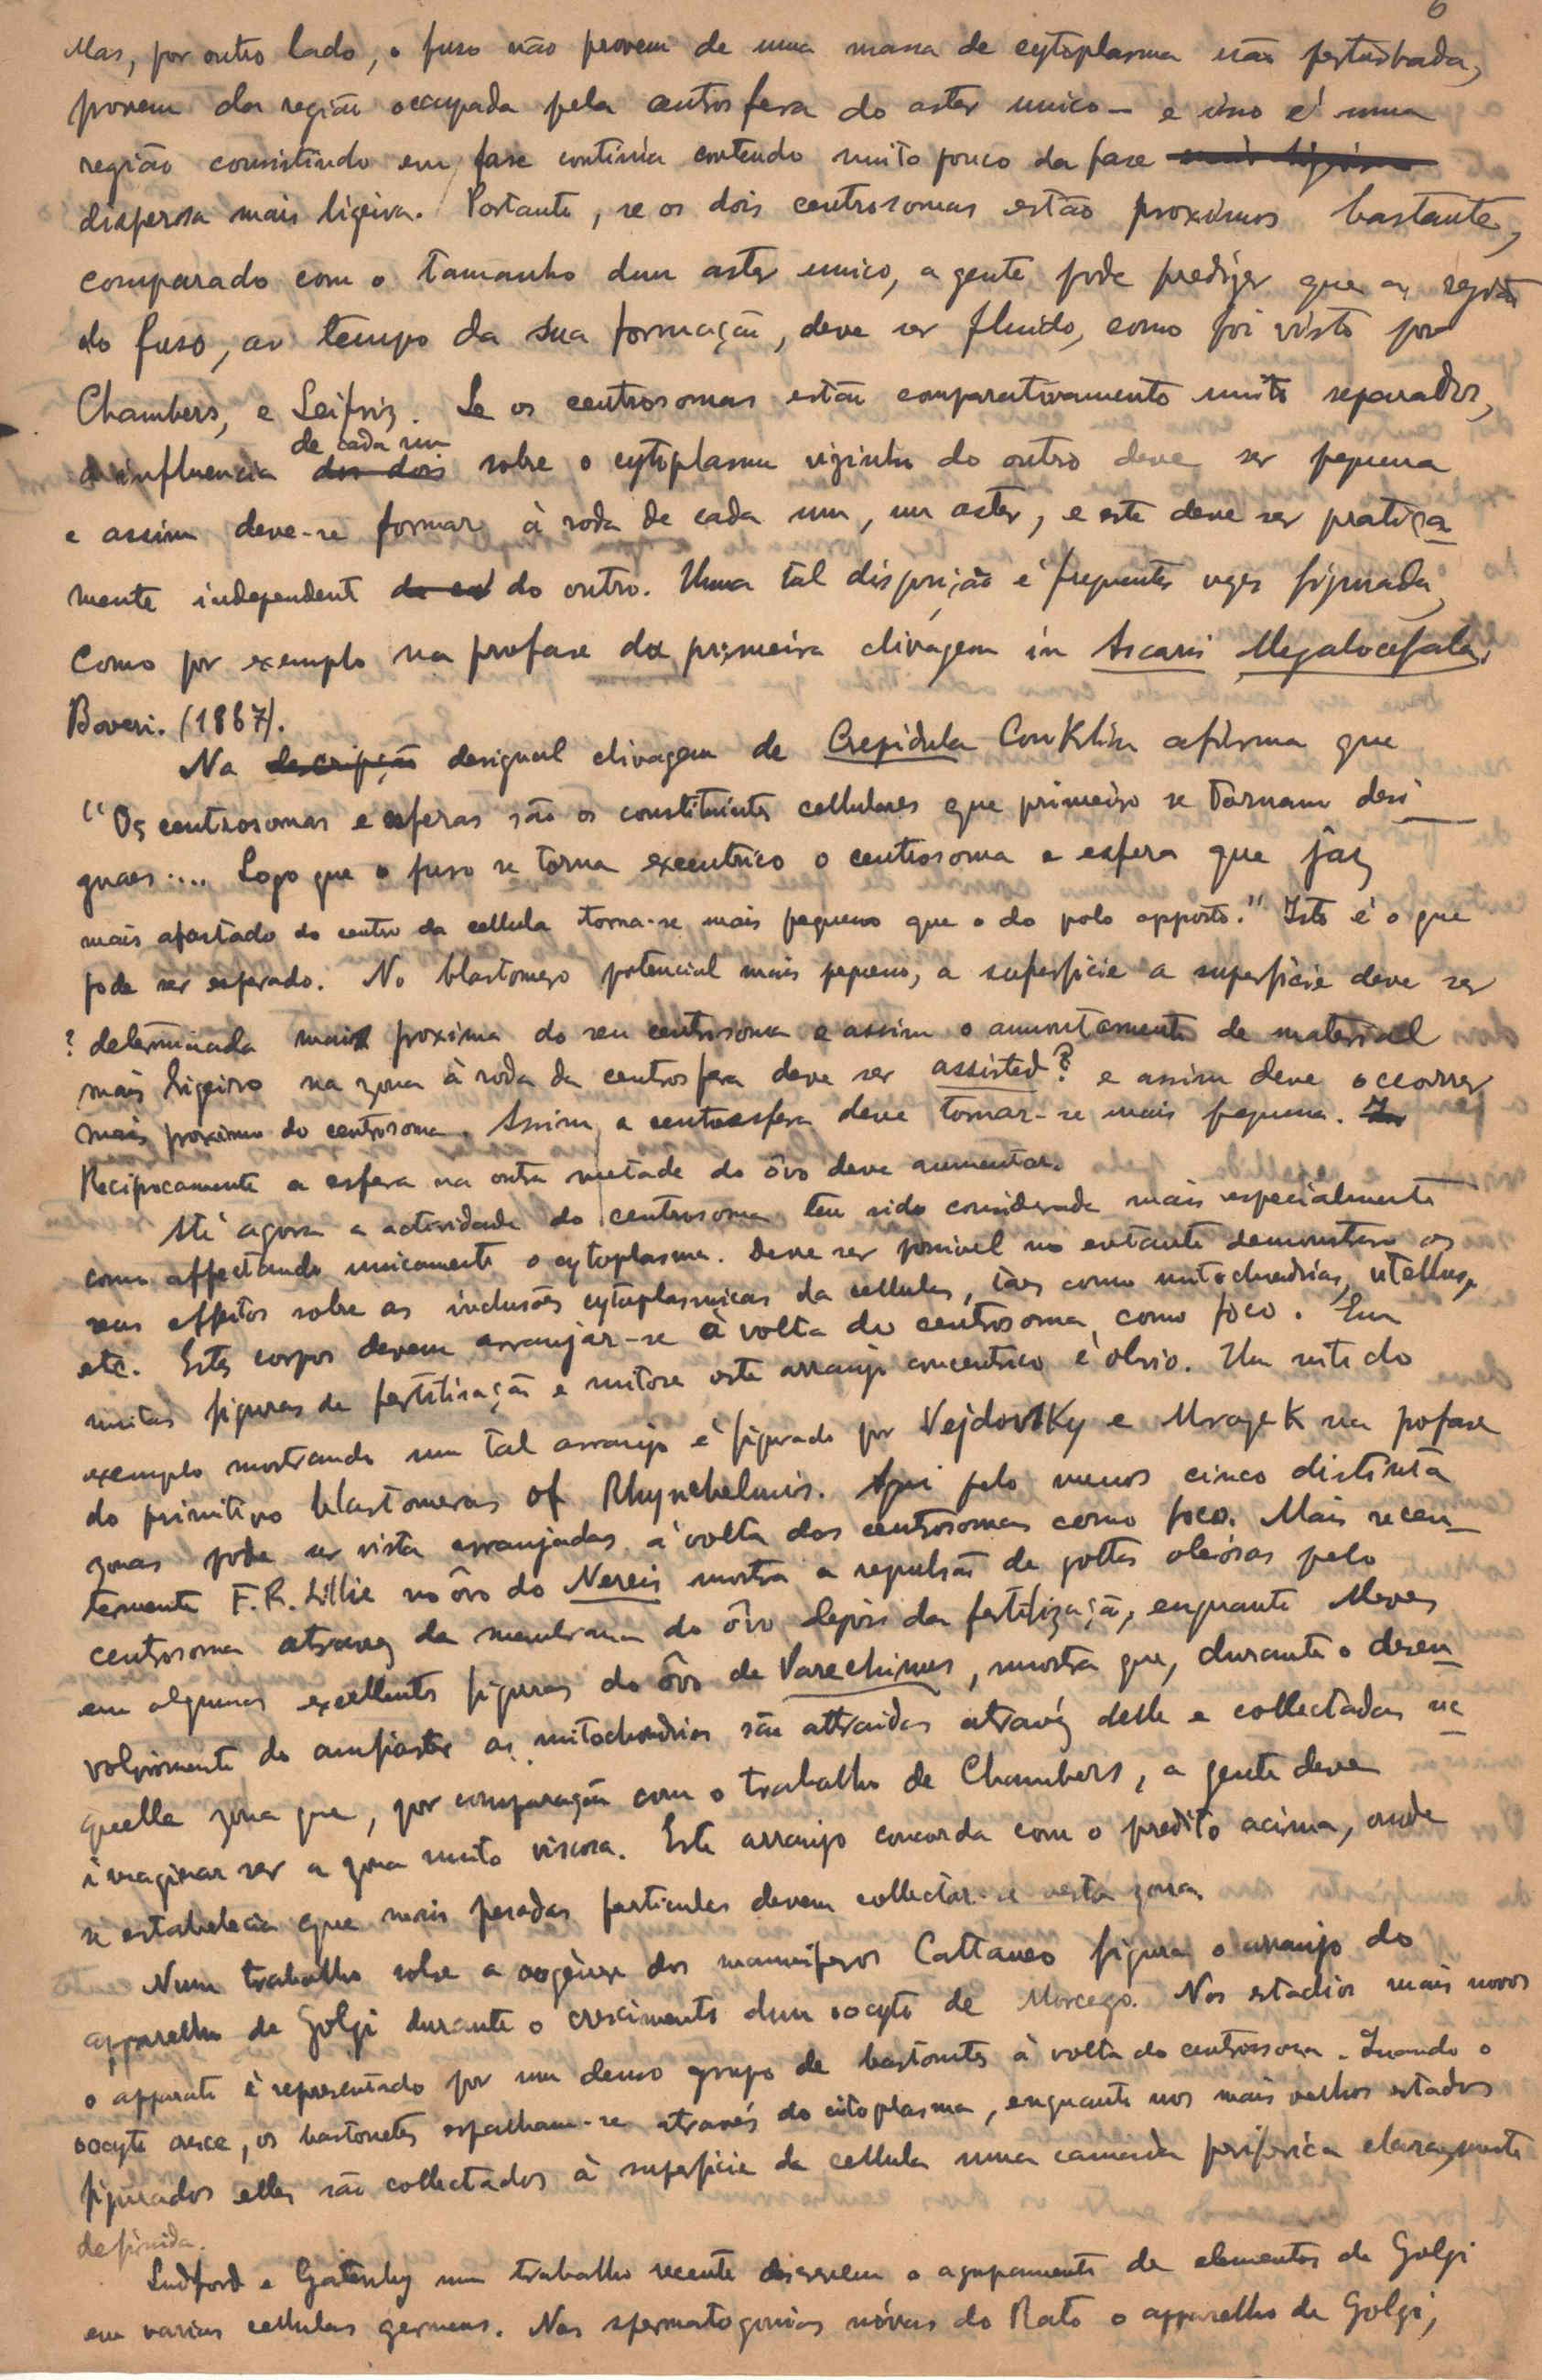 6
Mas, por outro lado, o fuso não provem de uma massa de cytoplasma não perturbada,
porem da região occupada pela centrosfera do aster unico — e isso é uma
região consistindo em fase continúa contendo muito pouco da fase
dispersa mais ligeira. Portanto, se os dois centrosomas estão proximos bastante,
comparado com o tamanho dum aster unico, a gente pode predizer que a região
do fuso, ao tempo da sua formação, deve ser fluido, como foi visto por
Chambers, e Seifriz. Se os centrosomas estão comparativamente muito separados,
a influencia de cada um dos dois sobre o cytoplasma vizinho do outro deve ser pequena
e assim deve-se formar à roda de cada um, um aster, e este deve ser pratica
mente independent do outro. Uma tal disposição é frequentes vezes figurada,
como por exemplo na profase da primeira clivagem in Ascaris Megalocefala.
Boveri. (1887).
Na descripção desigual clivagem de Crepidula Conklin afirma que
"Os centrosomas e esferas são os constituintes cellulares que primeiro se tornam desi
guaes .... Logo que o fuso se torna excentrico o centrosoma e esfera que jaz
mais afastado do centro da cellula torna-se mais pequeno que o do polo opposto." Isto é o que
pode ser esperado. No blastomero potencial mais pequeno, a superficie a superficie deve ser
? determinada mais proxima do seu centrosoma e assim o amontoamento de material
mais ligeiro na zona à roda da centrosfera deve ser assisted? e assim deve occorrer
mais proximo do centrosoma. Assim, a centroesfera deve tornar-se mais pequena.
Reciprocamente a esfera na outra metade do ôvo deve aumentar.
Até agora a actividade do centrosoma tem sido considerada mais especialmente
como affectando unicamente o cytoplasma. Deve ser possivel no entanto demonstrar os
seus effeitos sobre as inclusões cytoplasmicas da cellula, taes como mitochondrias, vitellus,
etc. Estes corpos devem arranjar-se à volta do centrosoma, como foco. Em
muitas figuras de fertilisação e mitose este arranjo concentrico é obvio. Um nitido
exemplo mostrando um tal arranjo é figurado por Vejdovsky e Mrazek na pofase
do primitivo blastomeras of Rhynchelmis. Aqui pelo menos cinco distinta
zonas pode ser vista arranjadas à volta dos centrosomas como foco. Mais recen
temente F.R. Lillie no ôvo do Nereis mostra a repulsão de gottas oleósas pelo
centrosoma atravez da membrana do ôvo depois da fertilização, enquanto Meves
em algumas excellentes figuras do ôvo de Parechinus, mostra que, durante o desen
volvimento do amfiaster as mitochondrias são attraidas atravéz delle e collectadas na
quella zona que, por comparação com o trabalho de Chambers, a gente deve
imaginar ser a zona muito viscosa. Este arranjo concorda com o predito acima, onde
se estabelecia que mais pesadas particulas devem collectar-se nesta zona.
Num trabalho sobre a oogènese dos mamiferos Cattaneo figura o arranjo do
apparelho de Golgi durante o crescimento dum oocyto de Morcego. Nos estadios mais novos
o apparato é representado por um denso grupo de bastonetes à volta do centrosoma. Quando o
oocyto cresce, os bastonetes espalham-se através do citoplasma, enquanto nos mais velhos estados
figurados elles são collectados à superficie da cellula numa camada periferica claramente
definida.
Ludford e Gatenby num trabalho recente discrevem o agrupamento de elementos de Golgi
em varias cellulas germens. Nas spermatogonias nóvas do Rato o apparelho de Golgi,